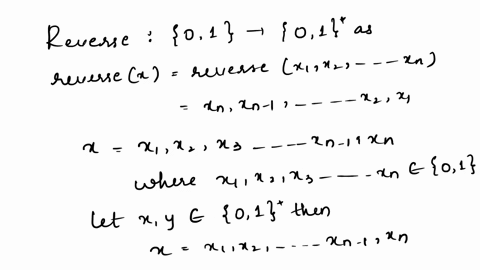 Reverse : {0,1} → {0,1}* as
reverse(x) = reverse (x1,x2,-----xn)
= xn,xn-1,-----x2,x1
x = x1,x2,x3-----xn-1,xn
where x1,x2,x3-----xn ∈ {0,1}
let x,y ∈ {0,1}* then
x = x1,x2,-----xn-1,xn